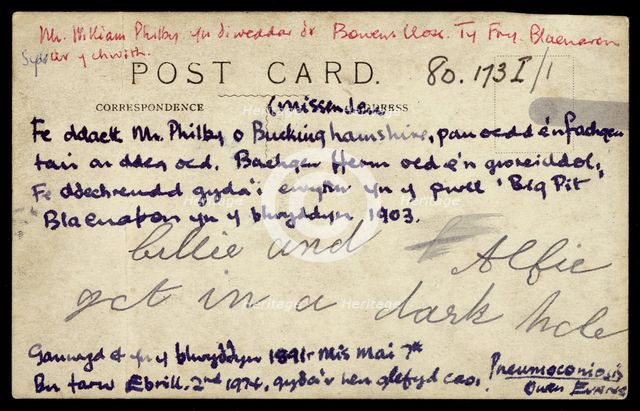 Mr. William Philby yn diweddar o'r Bowens Close. Ty Fry. Blaenavon
Sydd ar y chwith.
POST CARD.
80. 173 I/1
CORRESPONDENCE
ADDRESS
(Missenden
Fe ddaeth Mr. Philby o Buckinghamshire, pan oedd e'n fachgen
tair ar ddeg oed. Bachgen Herm oed e'n groseiddol,
Fe ddechreuodd gyda'i ewythr yn y pwll 'Big Pit'
Blaenafon yn y blwyddyn, 1903.
Billie and Alfie
get in a dark hole
Ganwyd ef yn y blwyddyn 1891 mis Mai 7th
Bu farw Ebrill. 2nd 1974, gyda'r hen glefyd cas.
Pneumoconiosis
Owen Evans
Heritage